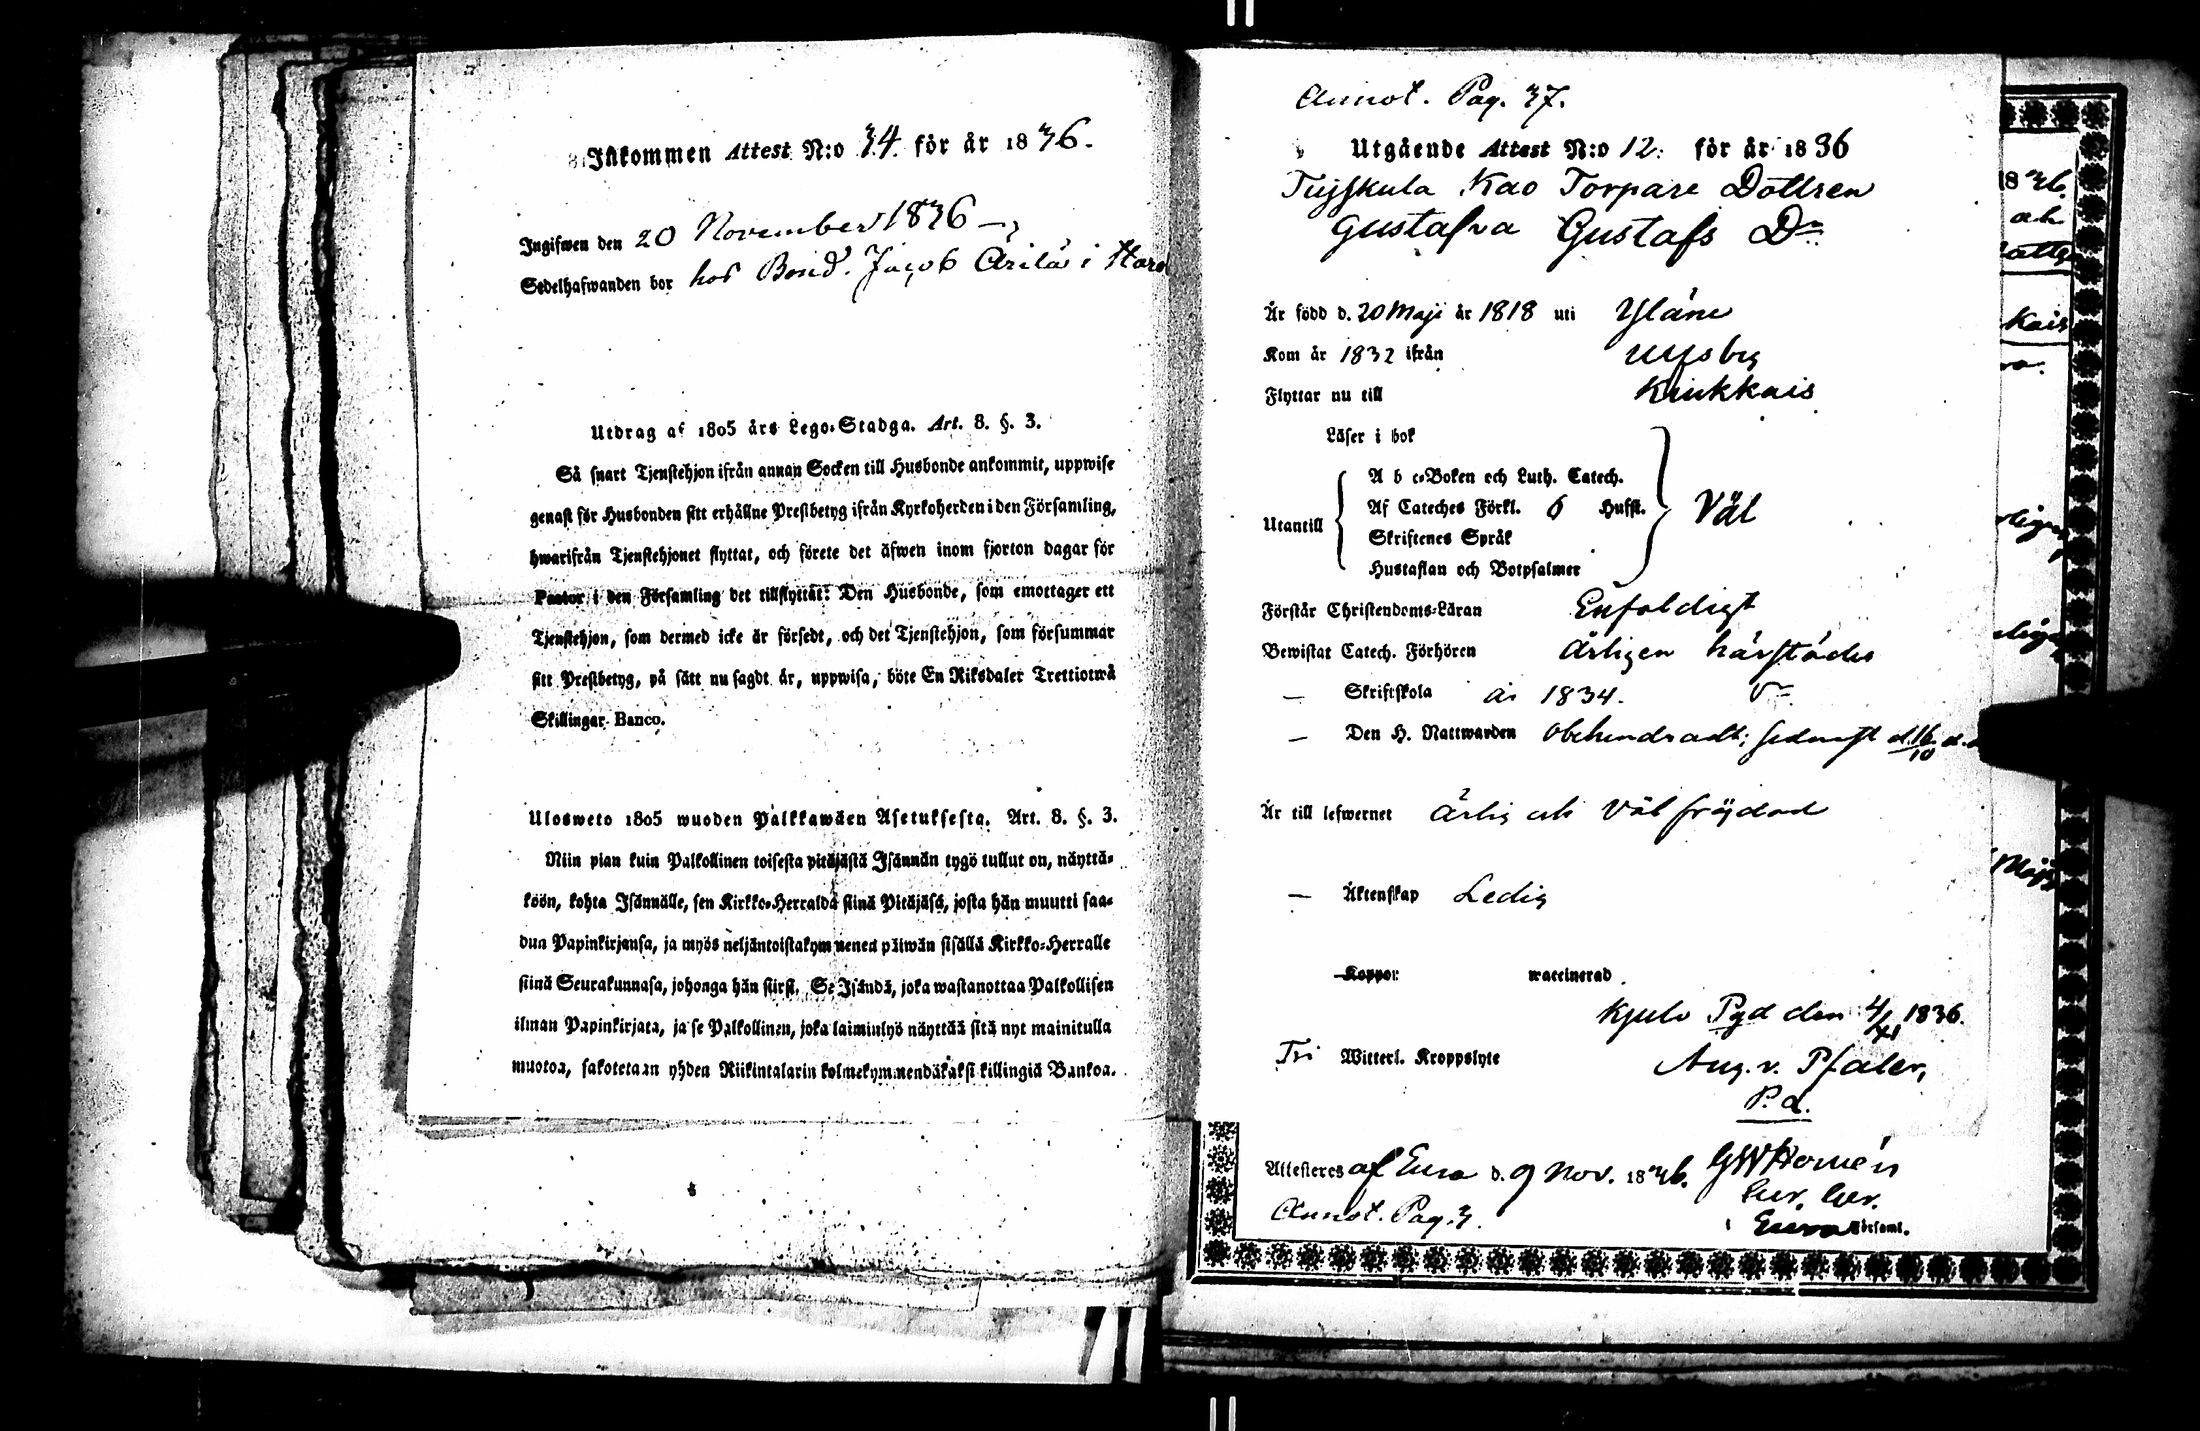 Inkommen Attest N:o 34. för år 1836.
Ingifwen den 20 November 1836
Sedelhafwanden bor hos Bond. Jacob Arila i
Utdrag af 1805 års Lego-Stadga. Art. 8. §. 3.
Så snart Tjenstehjon ifrån annan Socken till Husbonde ankommit, uppwise
genast för Husbonden sitt erhållne Prestbetyg ifrån Kyrkoherden i den Församling,
hwarifrån Tjenstehjonet flyttat, och förete det äfwen inom fjorton dagar för
Pastor i den Församling det tillflyttat: Den Husbonde, som emottager ett
Tjenstehjon, som dermed icke är försedt, och det Tjenstehjon, som försummar
sitt Prestbetyg, på sätt nu sagdt är, uppwisa, böte En Riksdaler Trettiotwå
Skillingar Banco.
Ulosweto 1805 wuoden Palkkawäen Asetuksesta. Art. 8. §. 3.
Niin pian kuin Palkollinen toisesta pitäjästä Isännän tygö tullut on, näyttä-
köön, kohta Isännälle, sen Kirkko-Herralda siinä Pitäjäsä, josta hän muutti saa-
dun Papinkirjansa, ja myös neljäntoistakymmenen päiwän sisällä Kirkko-Herralle
siinä Seurakunnasa, johonga hän siirsi. Se Isändä, joka wastanottaa Palkollisen
ilman Papinkirjata, ja se Palkollinen, joka laiminlyö näyttää sitä nyt mainitulla
muotoa, sakotetaan yhden Riikintalarin kolmekymmendäkaksi killingiä Bankoa.
Annot. Pag. 37.
Utgående Attest N:o 12. för år 1836
Kao Torpare Dottren
Gustafva Gustafs Dr
Är född d. 20 Maji år 1818 uti Yläne
Kom år 1832 ifrån Ulfsby
Flyttar nu till Kiukkais
Läser i bok
A b c-Boken och Luth. Catech.
Utantill Af Cateches Förkl. 6 Hufst. Väl
Skriftenes Språk
Hustaflan och Botpsalmer
Förstår Christendoms-Läran Enfaldigt
Bewistat Catech. Förhören Årligen härstädes
— Skriftskola år 1834.
— Den H. Nattwarden obehindradt; sednast d. 16/10
Är till lefwernet ärlig och väl frägdad
— Äktenskap Ledig
Koppor waccinerad
Kjulo Pgd den 4/XI 1836.
Fri Witterl. Kroppslyte Aug. v. Pfaler,
P. a.
Attesteras af Eura d. 9 Nov. 1836. GW Homén
Annot. Pag. 3.
Eura Församl.
1836.
och
Kais